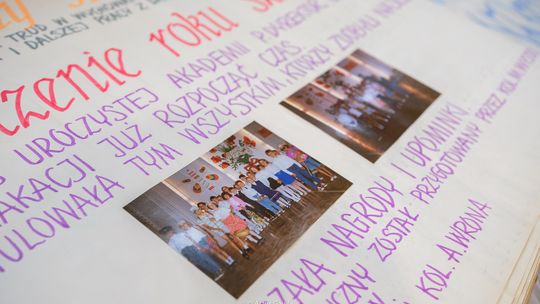 TRUD W
I DALSZEJ PRACY Z
zenie roku
P UROCZYSTEJ AKADEMII P. DYREKTOR
AKACJI JUŻ ROZPOCZĄĆ CZAS.
ULOWAŁA TYM WSZYSTKIM KTÓRZY ZDOBYLI
ZAŁA NAGRODY I UPOMINKI.
CZNY ZOSTAŁ PRZYGOTOWANY PRZEZ KOL.
KOL. A. WRONA